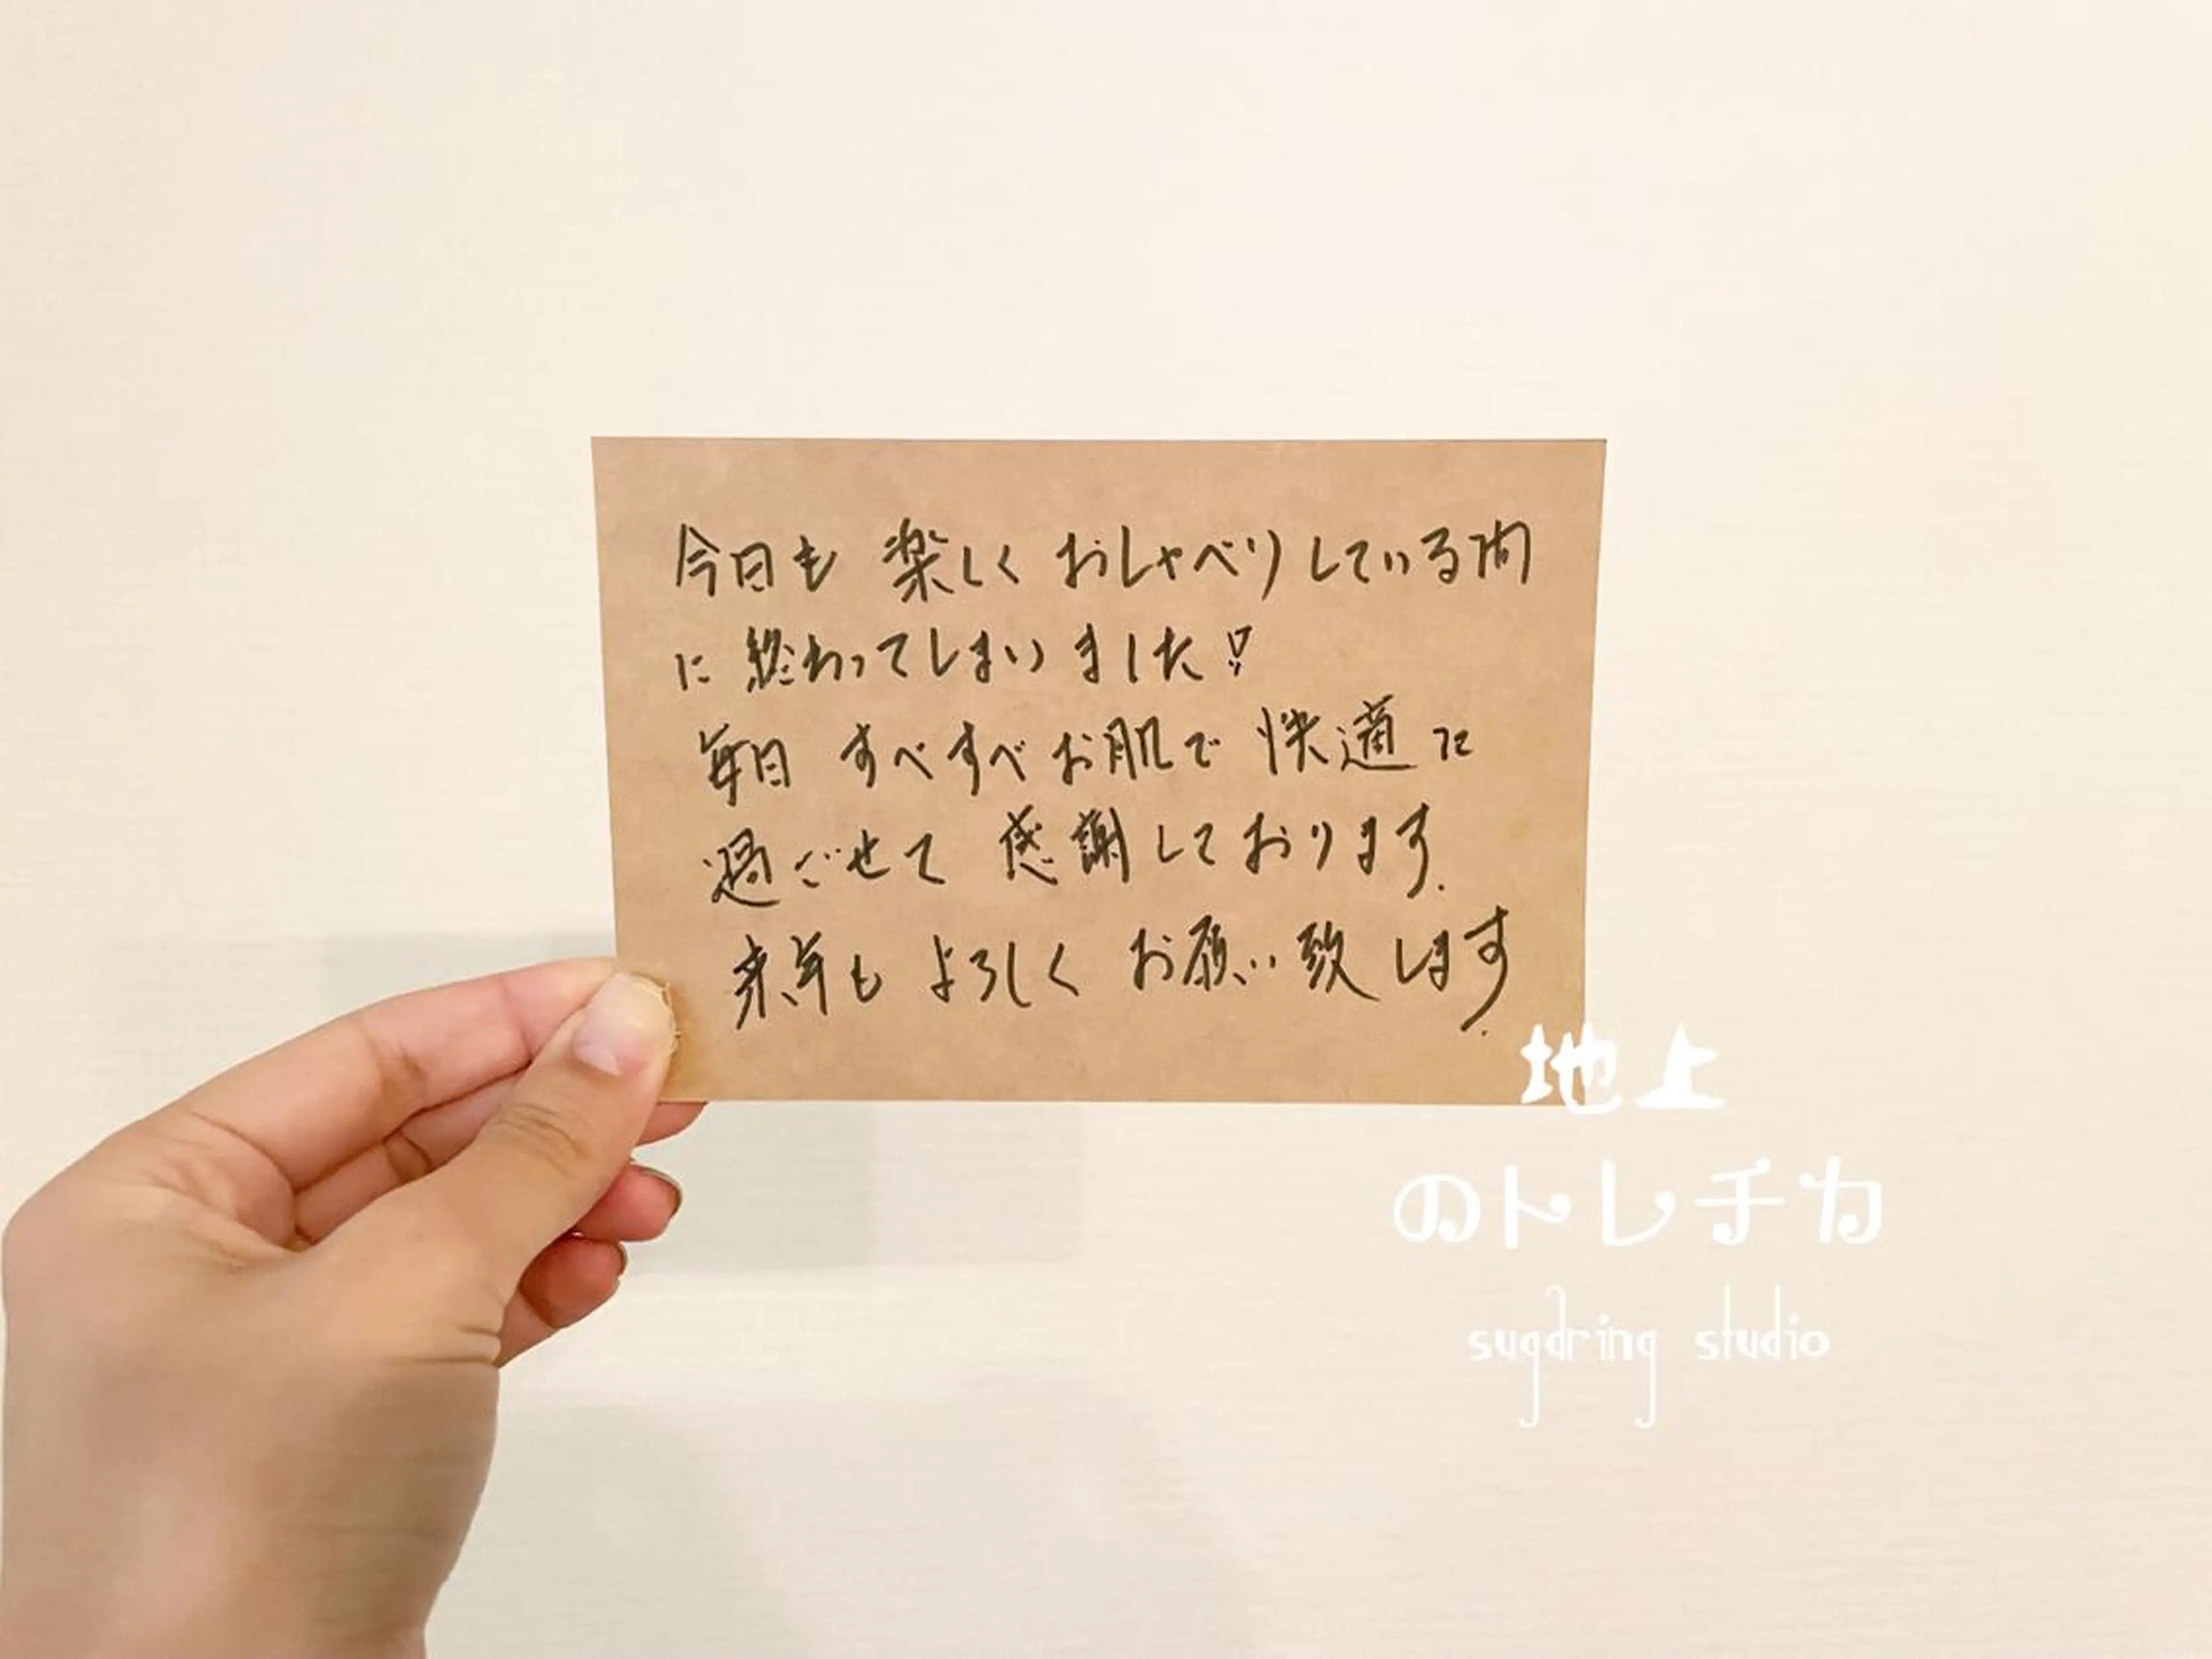 今日も 楽しく おしゃべりしている間
に 終わってしまいました!!
毎日 すべすべお肌で 快適に
過ごせて 感謝しております.
来年も よろしく お願い致します.
地上
のトレチカ
sugaring studio